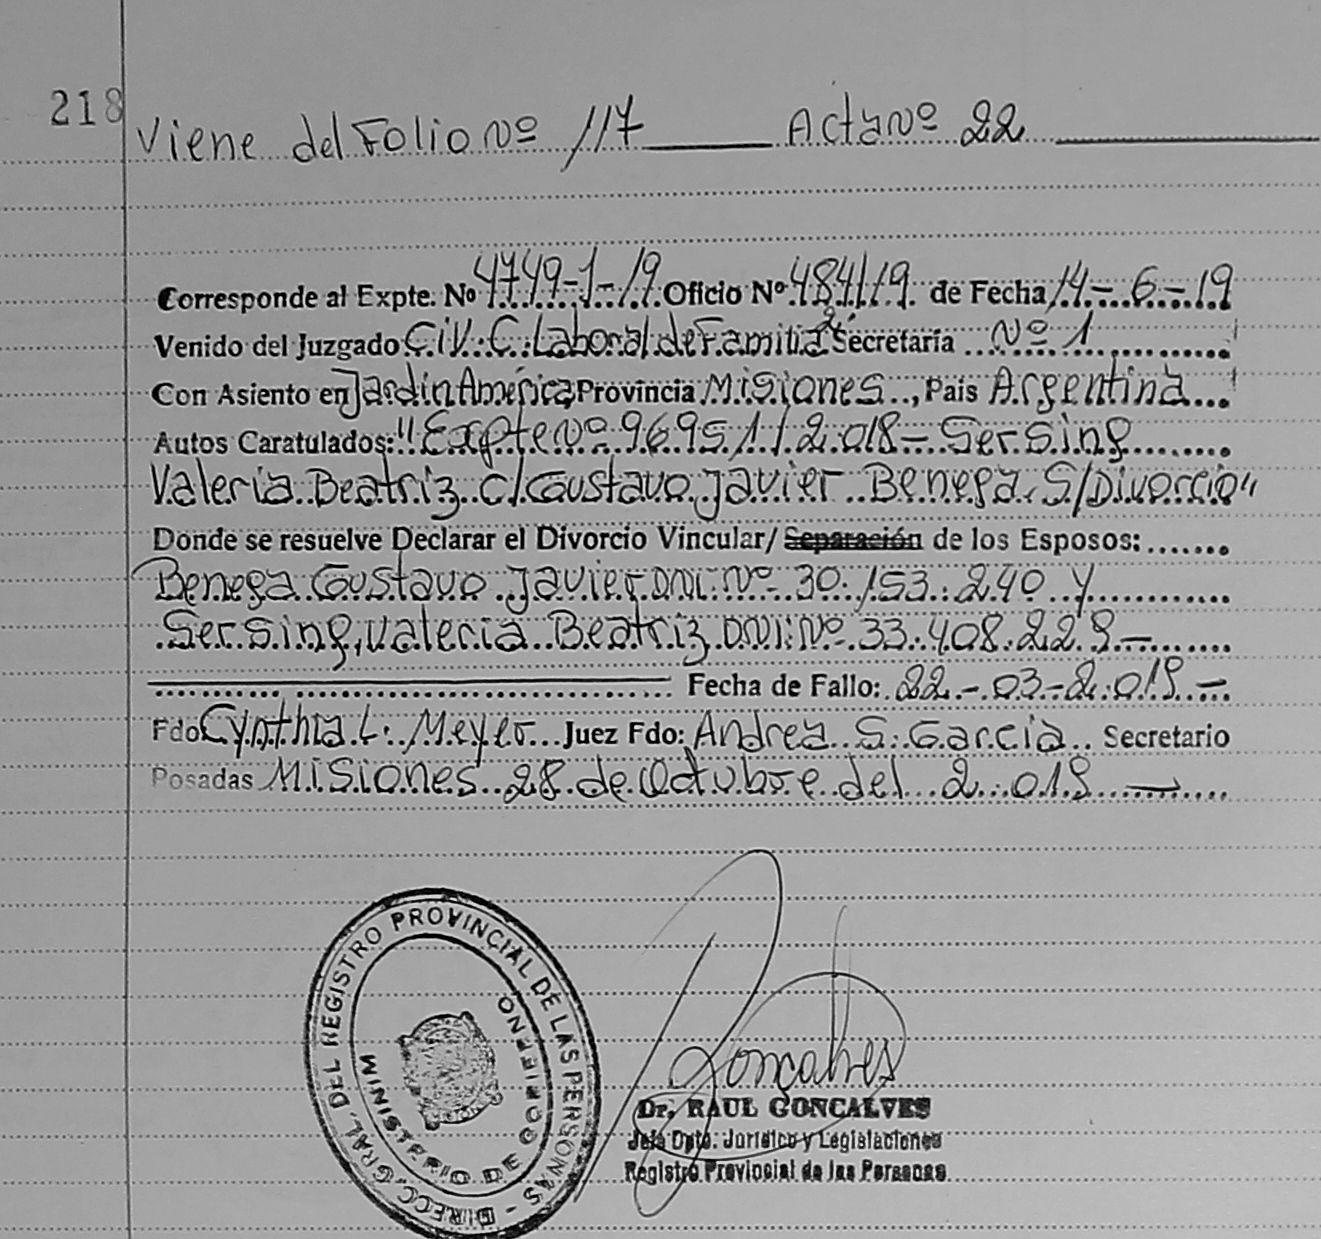 218
Viene del Folio Nº 117 Acta Nº 22
Corresponde al Expte. Nº 4749-1-19 Oficio Nº 484/19 de Fecha 14-6-19
Venido del Juzgado Civ. C. Laboral de Familia Secretaría Nº 1
Con Asiento en Jardín América, Provincia Misiones, País Argentina
Autos Caratulados: "Expte Nº 96951/2.018- Sersing
Valeria Beatriz c/ Gustavo Javier Benega S/Divorcio"
Donde se resuelve Declarar el Divorcio Vincular/ Separación de los Esposos:
Benega Gustavo Javier DNI Nº 30.153.240 y
Sersing, Valeria Beatriz DNI Nº 33.408.229.-
Fecha de Fallo: 22-03-2.019.-
Fdo Cynthia L. Meyer Juez Fdo: Andrea S. Garcia Secretario
Posadas Misiones 28 de Octubre del 2.019
DIRECC. GRAL. DEL REGISTRO PROVINCIAL DE LAS PERSONAS -
MINISTERIO DE GOBIERNO
Goncalves
Dr. RAUL GONCALVES
Jefe Dpto. Jurídico y Legislaciones
Registro Provincial de las Personas